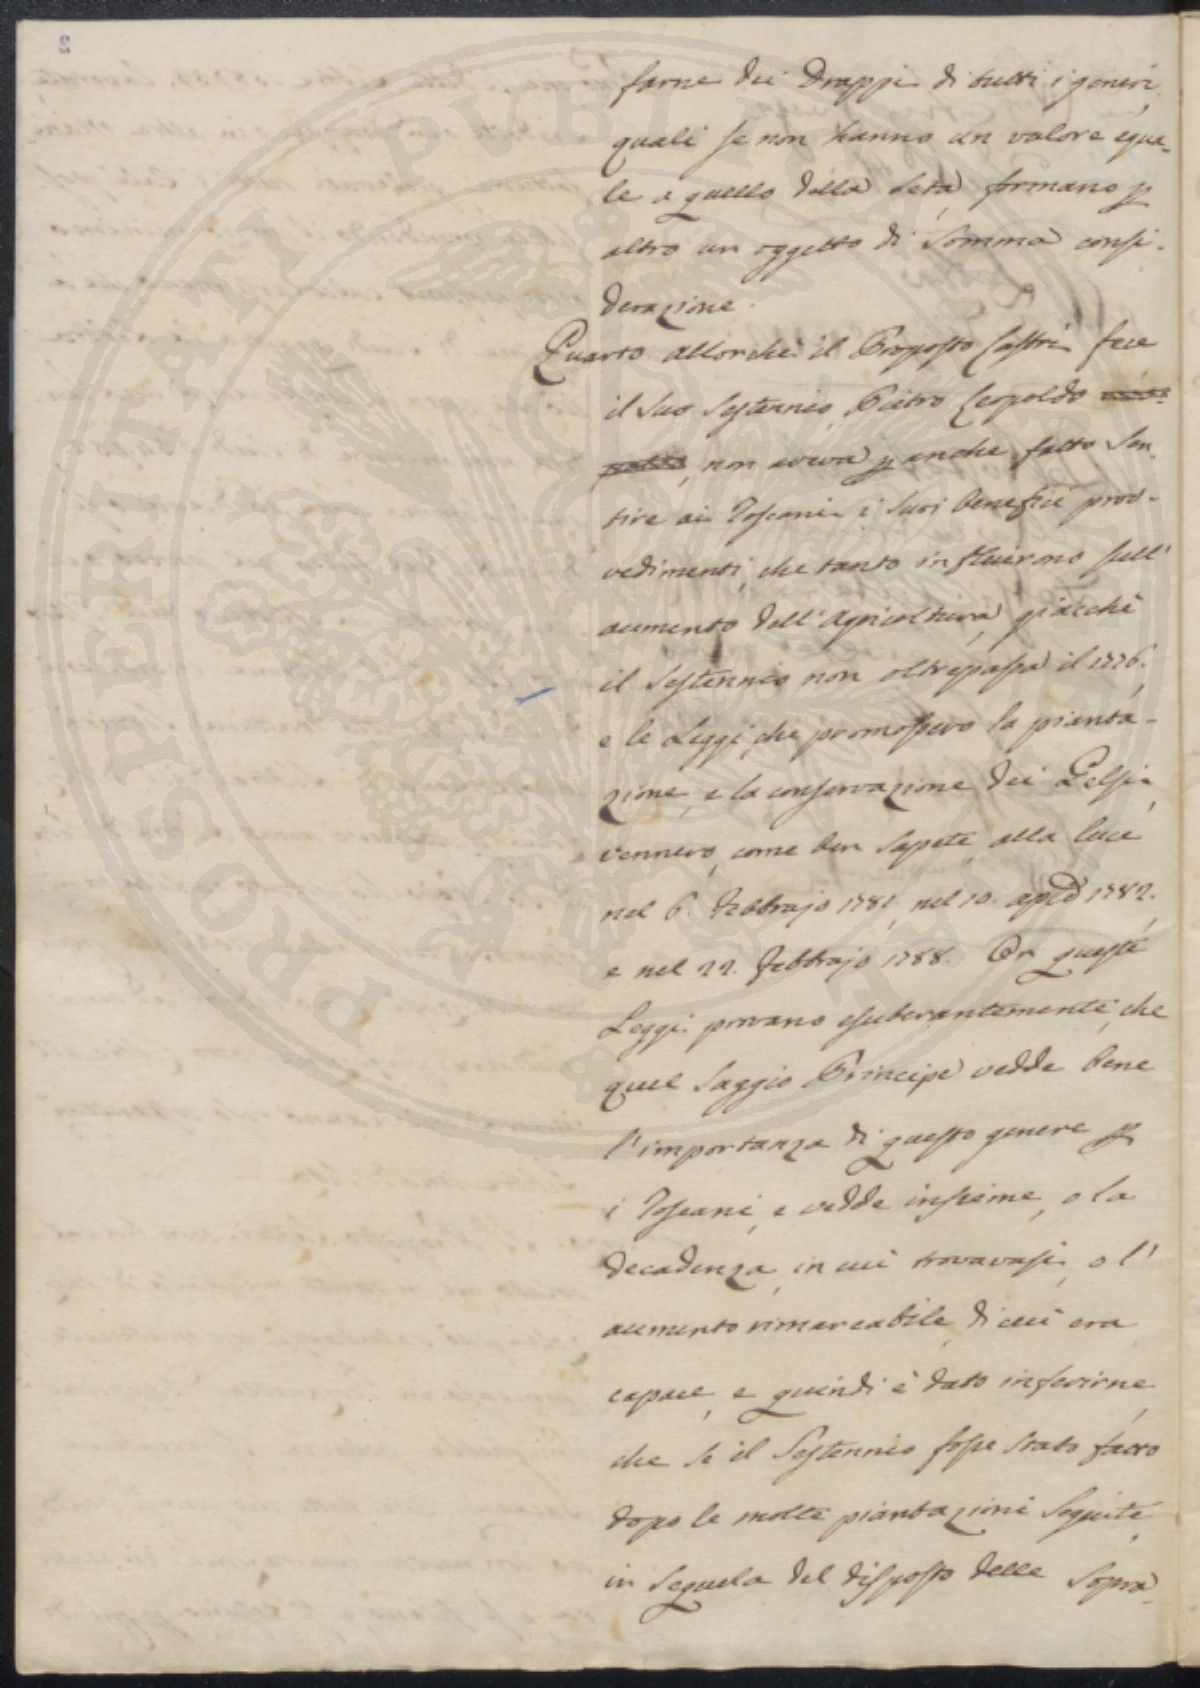 farne dei Drappi di tutti i generi,
quali se non hanno un valore egua-
le a quello della seta, formano p
altro un oggetto di somma consi-
derazione.
Quarto allorchè il Proposto Lastri fece
il suo Sestennio, Pietro Leopoldo
non aveva p anche fatto sen-
tire ai Toscani i suoi benefici prov-
vedimenti, che tanto influirono sull'
aumento dell'Agricoltura, giacchè
il Sestennio non oltrepassa il 1776.
e le Leggi, che promossero la pianta-
zione, e la conservazione dei Gelsi,
vennero, come ben sapete, alla luce
nel 6. Febbrajo 1781, nel 10. aple 1782.
e nel 22. Febbrajo 1788. Or queste
Leggi provano esuberantemente, che
quel saggio Principe vedde bene
l'importanza di questo genere p
i Toscani, e vedde insieme, o la
decadenza, in cui trovavasi, o l'
aumento rimarcabile, di cui era
capace, e quindi è dato inferirne,
che se il Sestennio fosse stato fatto
dopo le molte piantazioni seguite,
in sequela del disposto delle sopra-
2
PROSPERITATI PUBLICAE